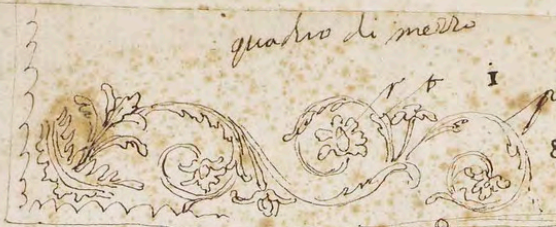 quadro di mezzo
r b i